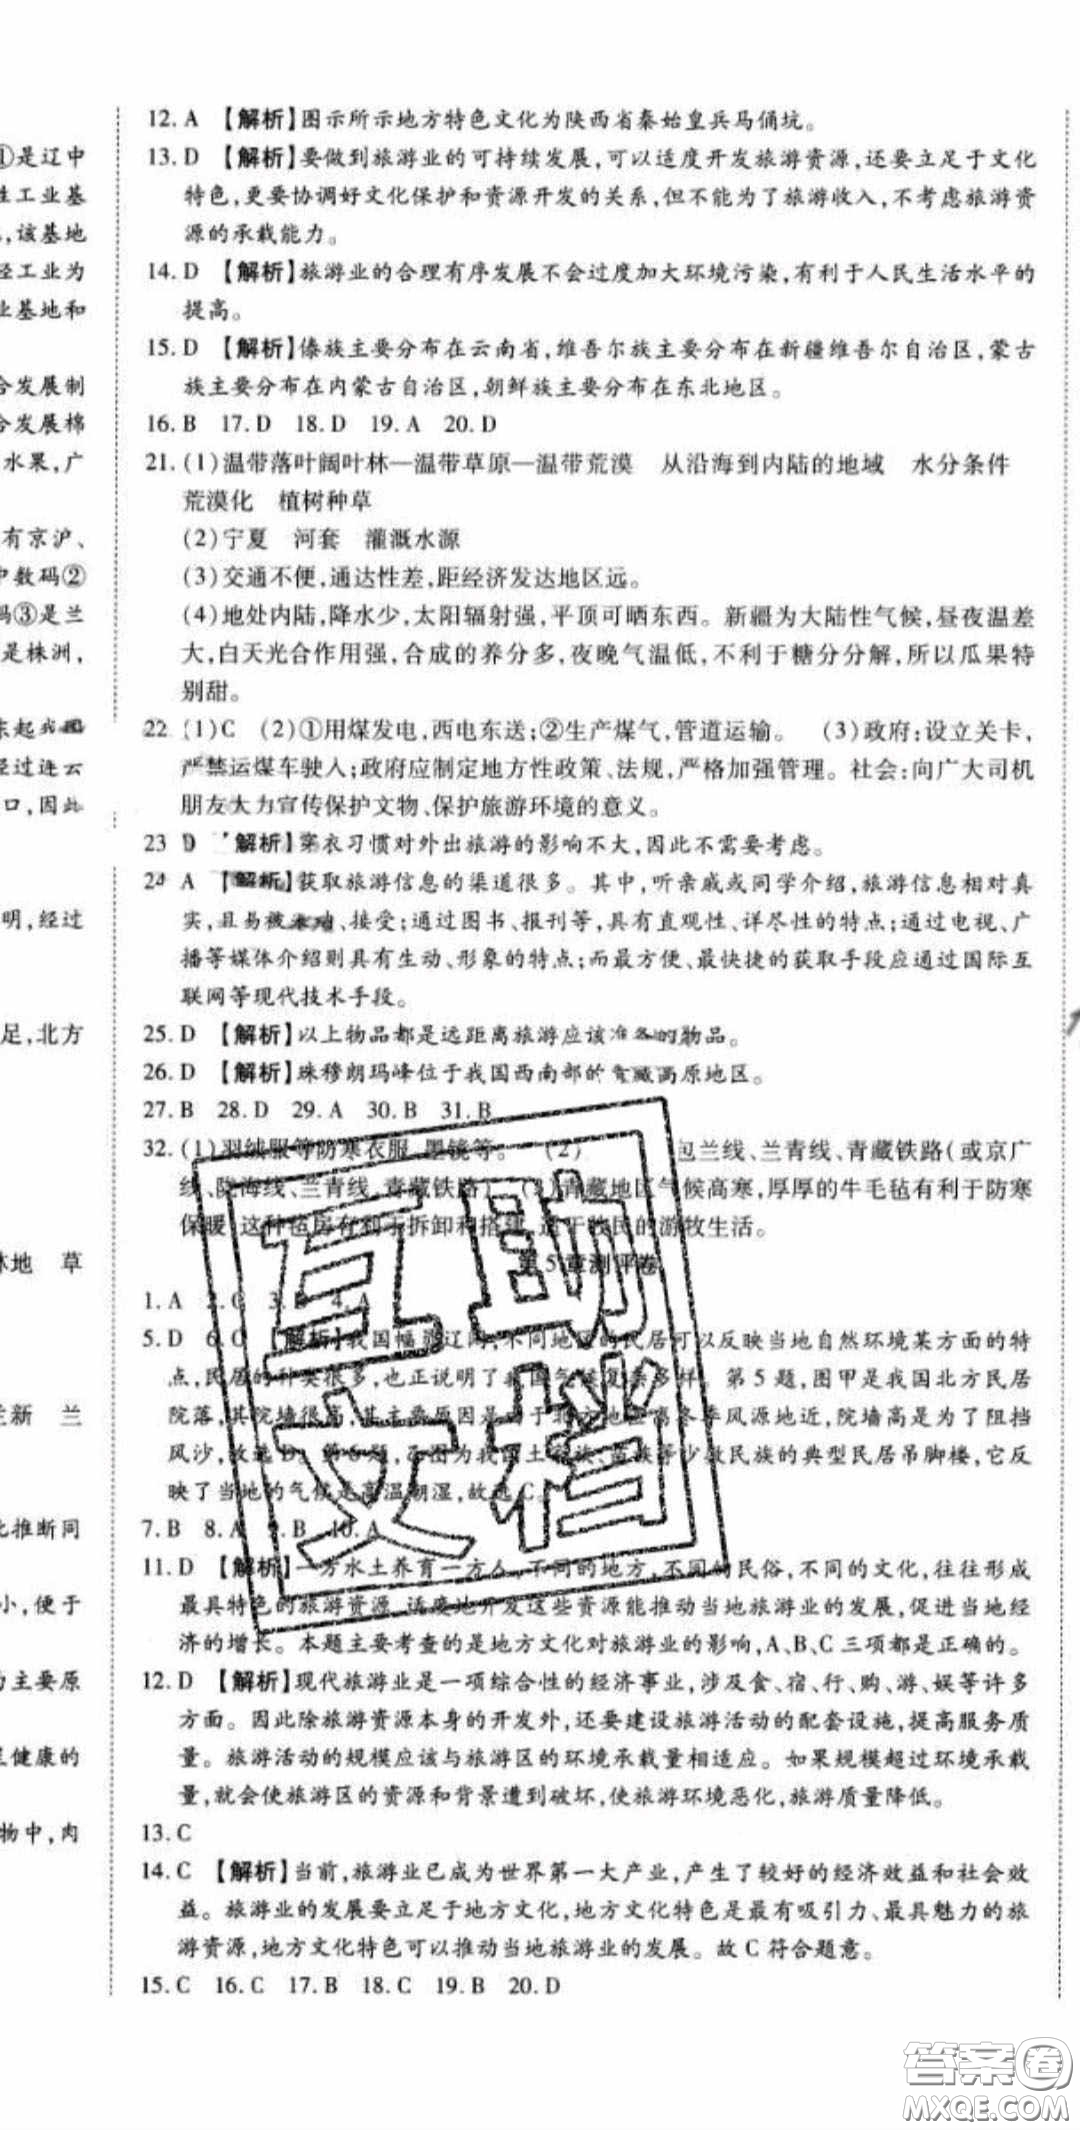 ①是辽中
性工业基
，该基地
轻工业为
业基地和
合发展制
合发展棉
水果，广
有京沪、
中数码②
码③是兰
是株洲，
东起我国
经过连云
口，因此
明，经过
足，北方
林地　草
兰新　兰
比推断同
小，便于
为主要原
是健康的
物中，肉
12. A 【解析】图示所示地方特色文化为陕西省秦始皇兵马俑坑。
13. D 【解析】要做到旅游业的可持续发展，可以适度开发旅游资源，还要立足于文化
特色，更要协调好文化保护和资源开发的关系，但不能为了旅游收入，不考虑旅游资
源的承载能力。
14. D 【解析】旅游业的合理有序发展不会过度加大环境污染，有利于人民生活水平的
提高。
15. D 【解析】傣族主要分布在云南省，维吾尔族主要分布在新疆维吾尔自治区，蒙古
族主要分布在内蒙古自治区，朝鲜族主要分布在东北地区。
16. B 17. D 18. D 19. A 20. D
21. (1)温带落叶阔叶林—温带草原—温带荒漠　从沿海到内陆的地域　水分条件
荒漠化　植树种草
(2)宁夏　河套　灌溉水源
(3)交通不便，通达性差，距经济发达地区远。
(4)地处内陆，降水少，太阳辐射强，平顶可晒东西。新疆为大陆性气候，昼夜温差
大，白天光合作用强，合成的养分多，夜晚气温低，不利于糖分分解，所以瓜果特
别甜。
22 (1)C (2)①用煤发电，西电东送；②生产煤气，管道运输。 (3)政府：设立关卡，
严禁运煤车驶入；政府应制定地方性政策、法规，严格加强管理。社会：向广大司机
朋友大力宣传保护文物、保护旅游环境的意义。
23 D 【解析】穿衣习惯对外出旅游的影响不大，因此不需要考虑。
24 A 【解析】获取旅游信息的渠道很多。其中，听亲戚或同学介绍，旅游信息相对真
实，且易被采纳、接受；通过图书、报刊等，具有直观性、详尽性的特点；通过电视、广
播等媒体介绍则具有生动、形象的特点；而最方便、最快捷的获取手段应通过国际互
联网等现代技术手段。
25. D 【解析】以上物品都是远距离旅游应该准备的物品。
26. D 【解析】珠穆朗玛峰位于我国西南部的青藏高原地区。
27. B 28. D 29. A 30. B 31. B
32. (1)羽绒服等防寒衣服、墨镜等。 (2) 包兰线、兰青线、青藏铁路（或京广
线、陇海线、兰青线、青藏铁路） (3)青藏地区气候高寒，厚厚的牛毛毡有利于防寒
保暖，这种毡房有利于拆卸和搭建，适于牧民的游牧生活。
第5章测评卷
1. A 2. C 3. 4. A
5. D 6. C 【解析】我国幅员辽阔，不同地区的民居可以反映当地自然环境某方面的特
点，民居的种类很多，也正说明了我国气候复杂多样。第5题，图甲是我国北方民居
院落，其院墙很高，其主要原因是由于北方地区离冬季风源地近，院墙高是为了阻挡
风沙，故选D。第6题，乙图为我国土家族、苗族等少数民族的典型民居吊脚楼，它反
映了当地的气候是高温潮湿，故选C。
7. B 8. A 9. B 10. A
11. D 【解析】一方水土养育一方人，不同的地方，不同的民俗，不同的文化，往往形成
最具特色的旅游资源，适度地开发这些资源能推动当地旅游业的发展，促进当地经
济的增长。本题主要考查的是地方文化对旅游业的影响，A、B、C三项都是正确的。
12. D 【解析】现代旅游业是一项综合性的经济事业，涉及食、宿、行、购、游、娱等许多
方面。因此除旅游资源本身的开发外，还要建设旅游活动的配套设施，提高服务质
量。旅游活动的规模应该与旅游区的环境承载量相适应。如果规模超过环境承载
量，就会使旅游区的资源和背景遭到破坏，使旅游环境恶化，旅游质量降低。
13. C
14. C 【解析】当前，旅游业已成为世界第一大产业，产生了较好的经济效益和社会效
益。旅游业的发展要立足于地方文化，地方文化特色是最有吸引力、最具魅力的旅
游资源，地方文化特色可以推动当地旅游业的发展。故C符合题意。
15. C 16. C 17. B 18. C 19. B 20. D
互助
文档
答案圈
MXQE.COM